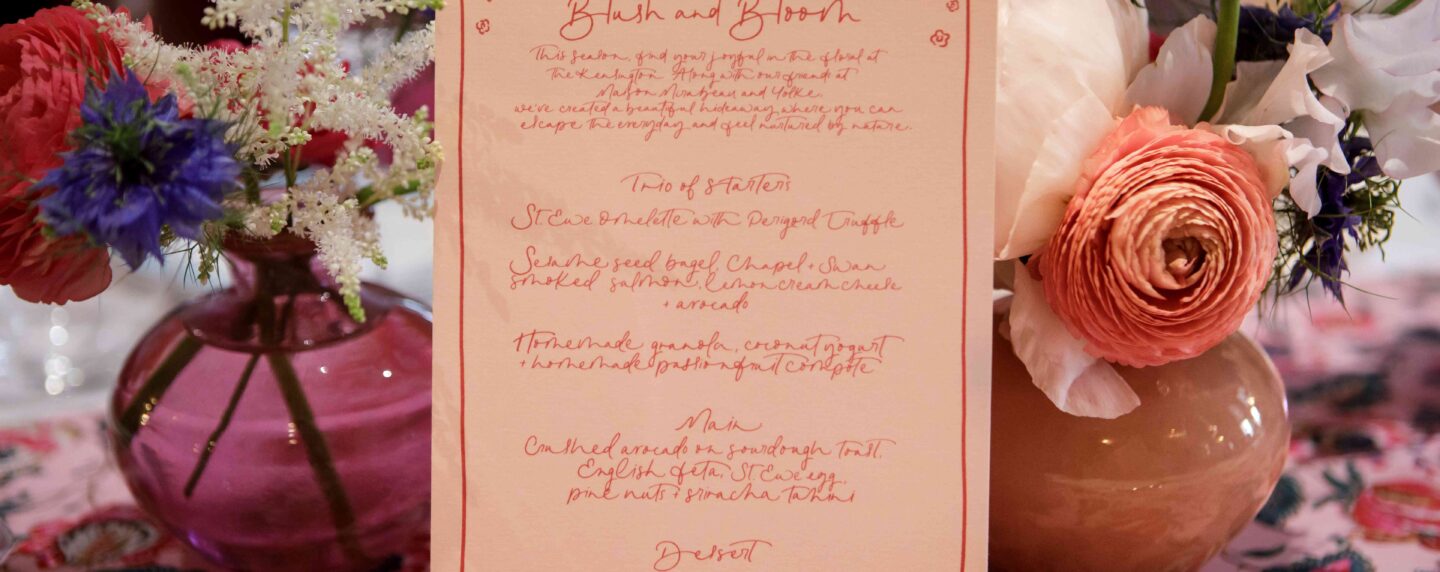 Blush and Bloom
This season, find your joyful in the floral at
The Kensington. Along with our friend at
Maison Mirabeau and Yolke,
we've created a beautiful hideaway where you can
escape the everyday and feel nurtured by nature.
Trio of Starters
St. Ewe Omelette with Perigord Truffle
Sesame seed bagel, Chapel + Swan
smoked salmon, lemon cream cheese
+ avocado
Homemade granola, coconut yogurt
+ homemade passionfruit compote
Main
Crushed avocado on sourdough toast,
English feta, St. Ewe egg,
pine nuts + sriracha tahini
Dessert